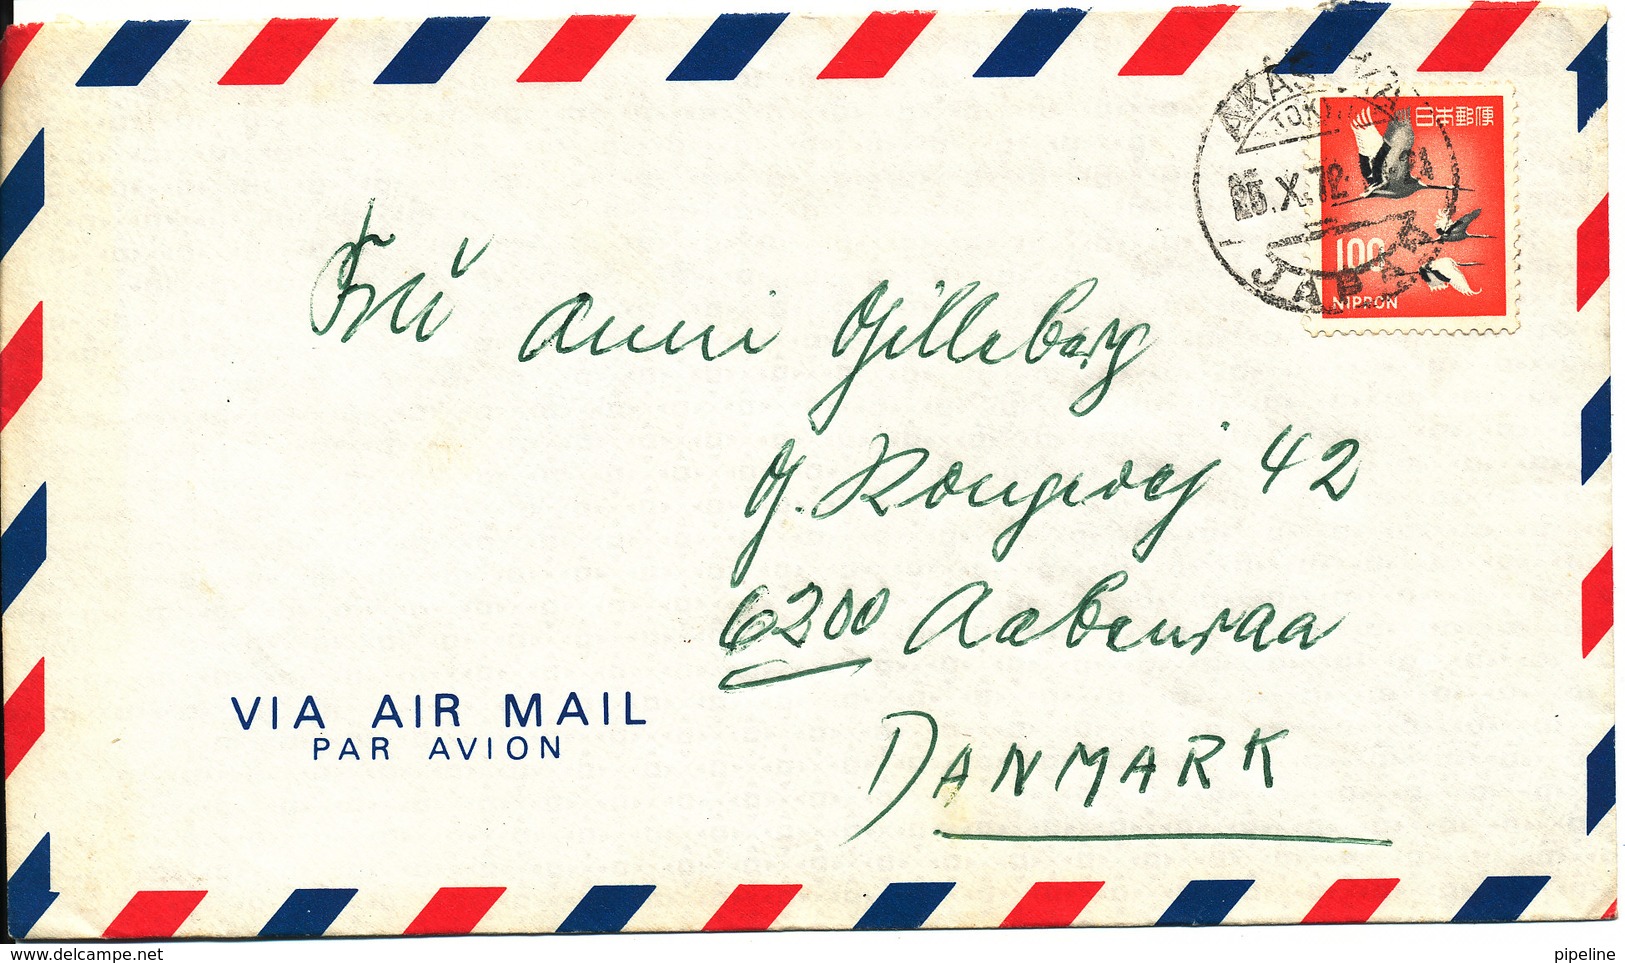 AKAS
TOKYO
25.X.72 21
JAPAN
日本郵便
100
NIPPON
Fru Anni Gilleberg
Gl. Kongevej 42
6200 Aabenraa
DANMARK
VIA AIR MAIL
PAR AVION
delcampe.net
pipeline